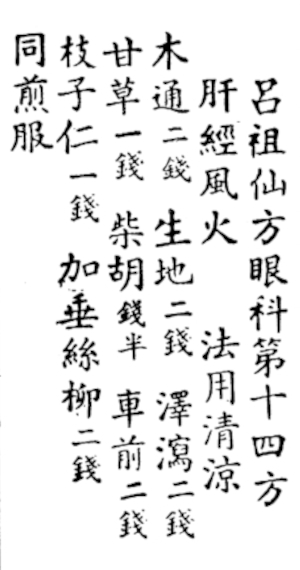 呂祖仙方眼科第十四方
肝經風火　法用清涼
木通二錢　生地二錢　澤瀉二錢
甘草一錢　柴胡錢半　車前二錢
枝子仁一錢　加垂絲柳二錢
同煎服